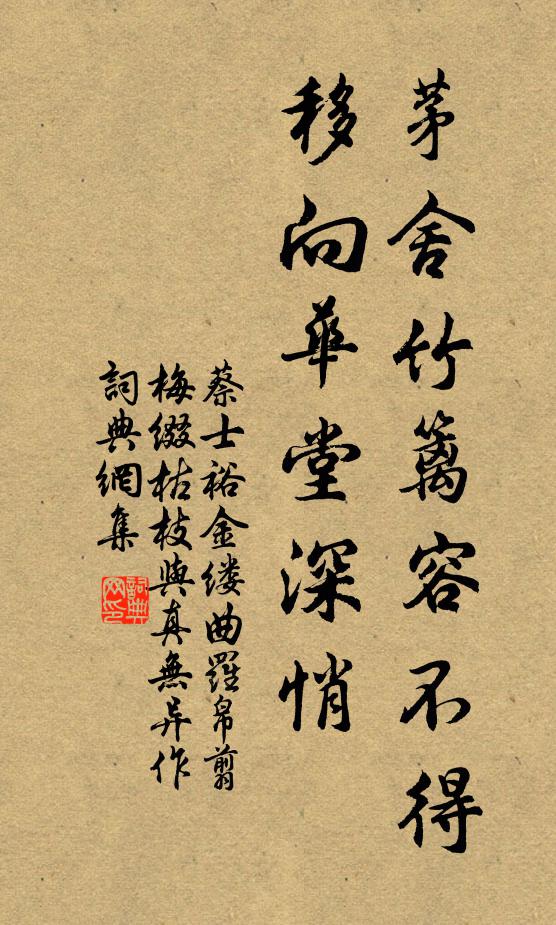 茅舍竹篱容不得
移向華堂深悄
蔡士裕金缕曲羅帛翦
梅缀枯枝與真無异作
詞典網集
詞典
网印